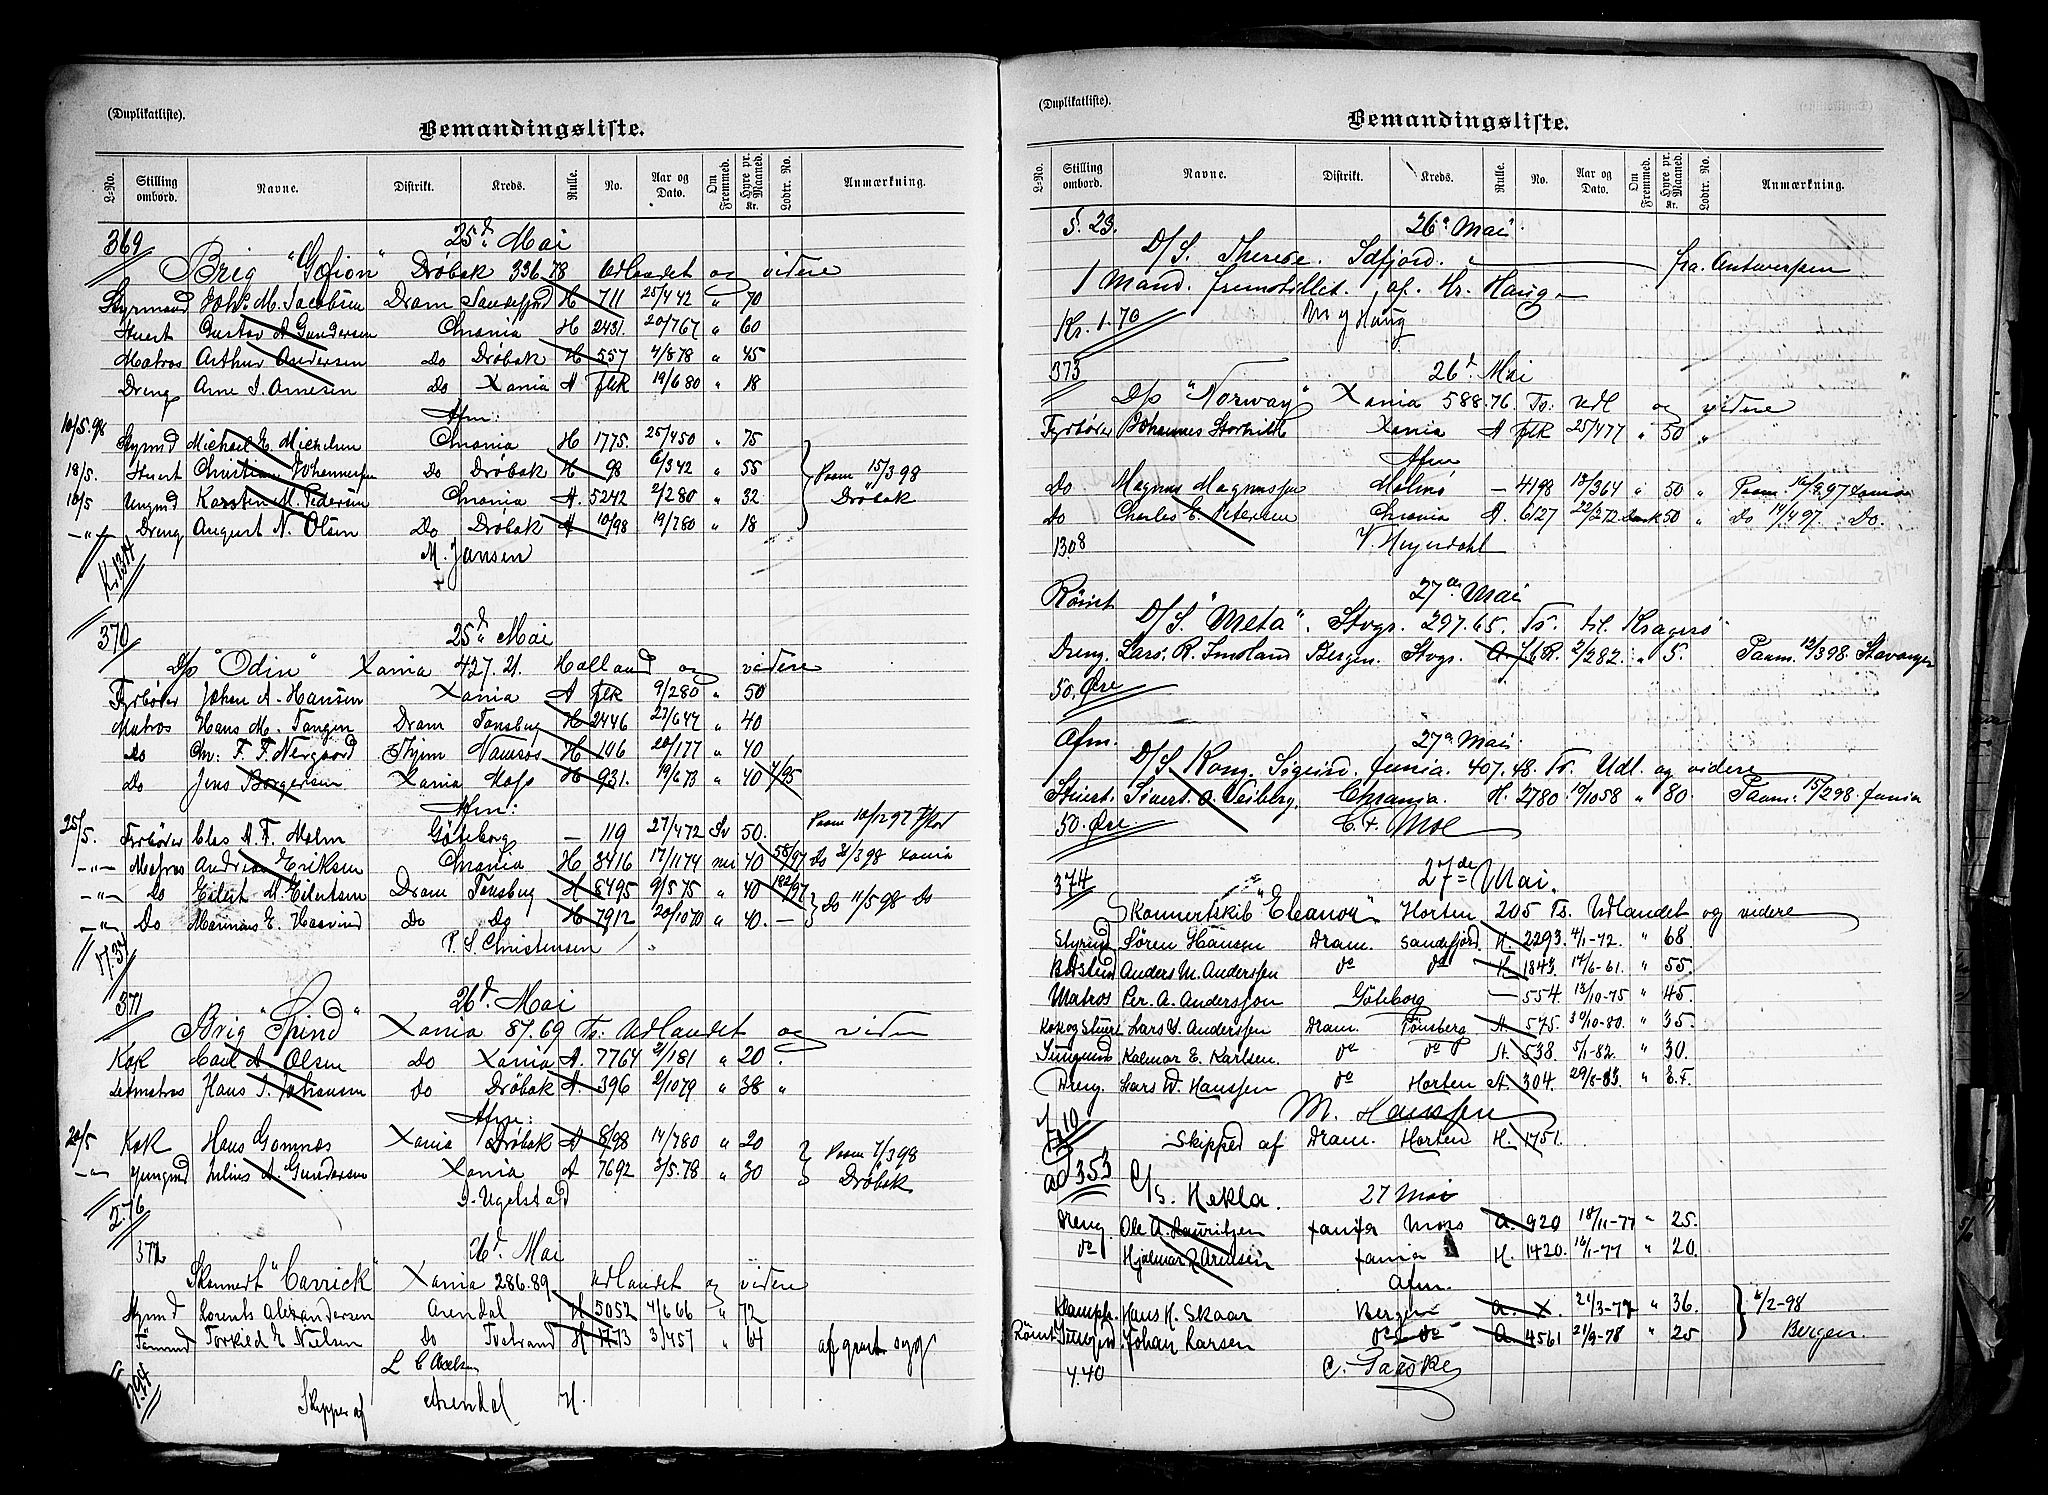 (Duplikatliste).
Bemandingsliste.
L-No. Stilling ombord. Navne. Distrikt. Kreds. Rulle. No. Aar og Dato. Om Fremmed. Hyre pr. Maaned. Kr. Lodtr. No. Anmærkning.
369 25d Mai
Brig "Gefion" Drøbak 336.78 Udlandet og videre
Styrmand Johs. M. Jacobsen Dram Sandefjord H 711 25/4 42 " 70
Stuert Gustav A Gundersen Chrania H 2431. 20/7 67 " 60
Matros Arthur Andersen Do Drøbak H 557 4/8 78 " 45
Dreng Arne I. Arnesen Do Xania A flk 19/6 80 " 18
Afm:
10/5.98 Styrmd Michael E. Michelsen Chrania H 1775. 25/4 50 " 75
18/5. Stuert Christian Johannessen Do Drøbak H 98 6/3 42 " 55 Paam 15/3 98
16/5 Ungmd Karsten M. Pedersen Chrania A. 5242 2/2 80 " 32 Drøbak
-"- Dreng August N. Olsen Do Drøbak A 10/98 19/7 80 " 18
M. Jansen
Kr. 13.14
370 25d Mai
D/p "Odin" Xania 427.21. Holland og videre
Fyrbøter Johan A. Hansen Xania A flk 9/2 80 " 50
Matros Hans M. Tangen Dram Tønsbrg H 2446 27/6 47 " 40
Do Chr. F. F. Nergaard Thjem Namsos H 106 20/1 77 " 40
Do Jens Borgersen Xania Moss H 931. 19/6 73 " 40 4/95
Afm:
25/5. Fyrbøter Clas A. F. Malm Gøteborg — 119 27/4 72 Sv 50. Paam 10/12 97
-"- Matros Andreas Eriksen Chrania H 3416 17/11 74 40 58/97 Do 31/3 98 Xania
-"- Do Eilert M. Eilertsen Dram Tønsbrg H 8495 9/5 75 " 40 182/97 Do 11/5 98 Do
-"- Do Marinius E. Do Do H 7912 20/10 70 " 40. —
P. S. Christensen
17.34
371 26d. Mai
Brig "Spind" Xania 87.69 Ts. Udlandet og videre
Kok Carl A. Olsen Do Xania A. 7764 2/1 81 " 20 "
Letmatros Hans J. Johansen Do Drøbak A. 396 2/10 79 " 38 "
Afm:
20/5 Kok Hans Gomnæs Xania Drøbak A 8/98 14/7 80 " 20 Paam 7/3 98
-"- Jungmd Julius A. Gundersen Xania A 7692 3/5.78 " 30 Drøbak
J. Ugelstad
2.76
372 26d. Mai
Skonnert "Carrick" Xania 286.89 Udlandet og videre
Styrmd Lorents Alexandersen Arendal H 5052 4/6 66 " 72
Tømmd Torkied E Nielsen Do Tvetrand H 1773 3/4 57 " 64
L C Axelsen
Skipper af Arendal H.
(Duplikatliste).
Bemandingsliste.
L-No. Stilling ombord. Navne. Distrikt. Kreds. Rulle. No. Aar og Dato. Om Fremmed. Hyre pr. Maaned. Kr. Lodtr. No. Anmærkning.
§. 23. 26d Mai
D/S. Therese. Idfjord. fra. Antwerpen
1 Mand. fremstillet. af. Hr. Haug
Kr. 1.70 Haug
373 26d. Mai
D/p "Norway" Xania 588.76. Ts. Udl og videre
Fyrbøter Johannes Xania A flk 25/4 77 " 50 "
Afm
Do Magnus Magnussen Malmø — 4198 13/3 64 " 50 " Paam. 16/8 97 Xania
Do Charles E. Petersen Chrania A. 6127 22/2 72 Dansk 50 " Do 14/4 97. Do.
13.08 V. Heyerdahl
Rømt 27de Mai
D/S. "Meta". Stvgr. 297.65. Ts. til Kragerø
Dreng. Lars. R. Imsland Bergen. Stvgr. A. flk. 2/2 82. " 5. Paam. 12/3 98. Stavanger
50. Øre
Afm. 27d Mai
D/S Kong. Sigurd. Xania. 407.48. Ts. Udl. og videre
Stuert. Sivert. O. Veiberg. Chrania. H. 2780 19/10 58 " 80. Paam. 15/2 98. Xania
50. Øre C. F. Moe
374 27de Mai.
Skonnertskib "Eleanor" Horten 205 Ts. Udlandet og videre
Styrmd Søren Hansen Dram. Sandefjord. H. 2293 4/1-72. " 68
Anders M. Anderssen do do H 1843. 14/6-61. " 55.
Matros Per. A. Andersson Göteborg — 554. 13/10-75 " 45.
Kok og Stuert Lars Y. Anderssen Dram. Tønsberg A. 575. 30/10-80. " 35.
Jungmd Kalmar E. Karlsen. do do A. 538. 5/1-82. " 30.
Dreng. Lars W. Hanssen do Horten A 304. 29/8-83. " E.F.
M. Hanssen
Skipper af Dram. Horten H. 1751.
ad 353 C/S. Hekla. 27 Mai
Dreng Ole A. Lauritzen Xania Moss A. 920 18/11-77 " 25.
do Hjalmar Z Arensen Xania H. 1420. 16/1-77 " 20.
Afm.
Hans H. Skaar Bergen A. X. 21/3-77 " 36. 6/2-98
Rømt Johan Larsen do do A. 4561 21/9-78 " 25 Bergen.
4.40 C. Paaske